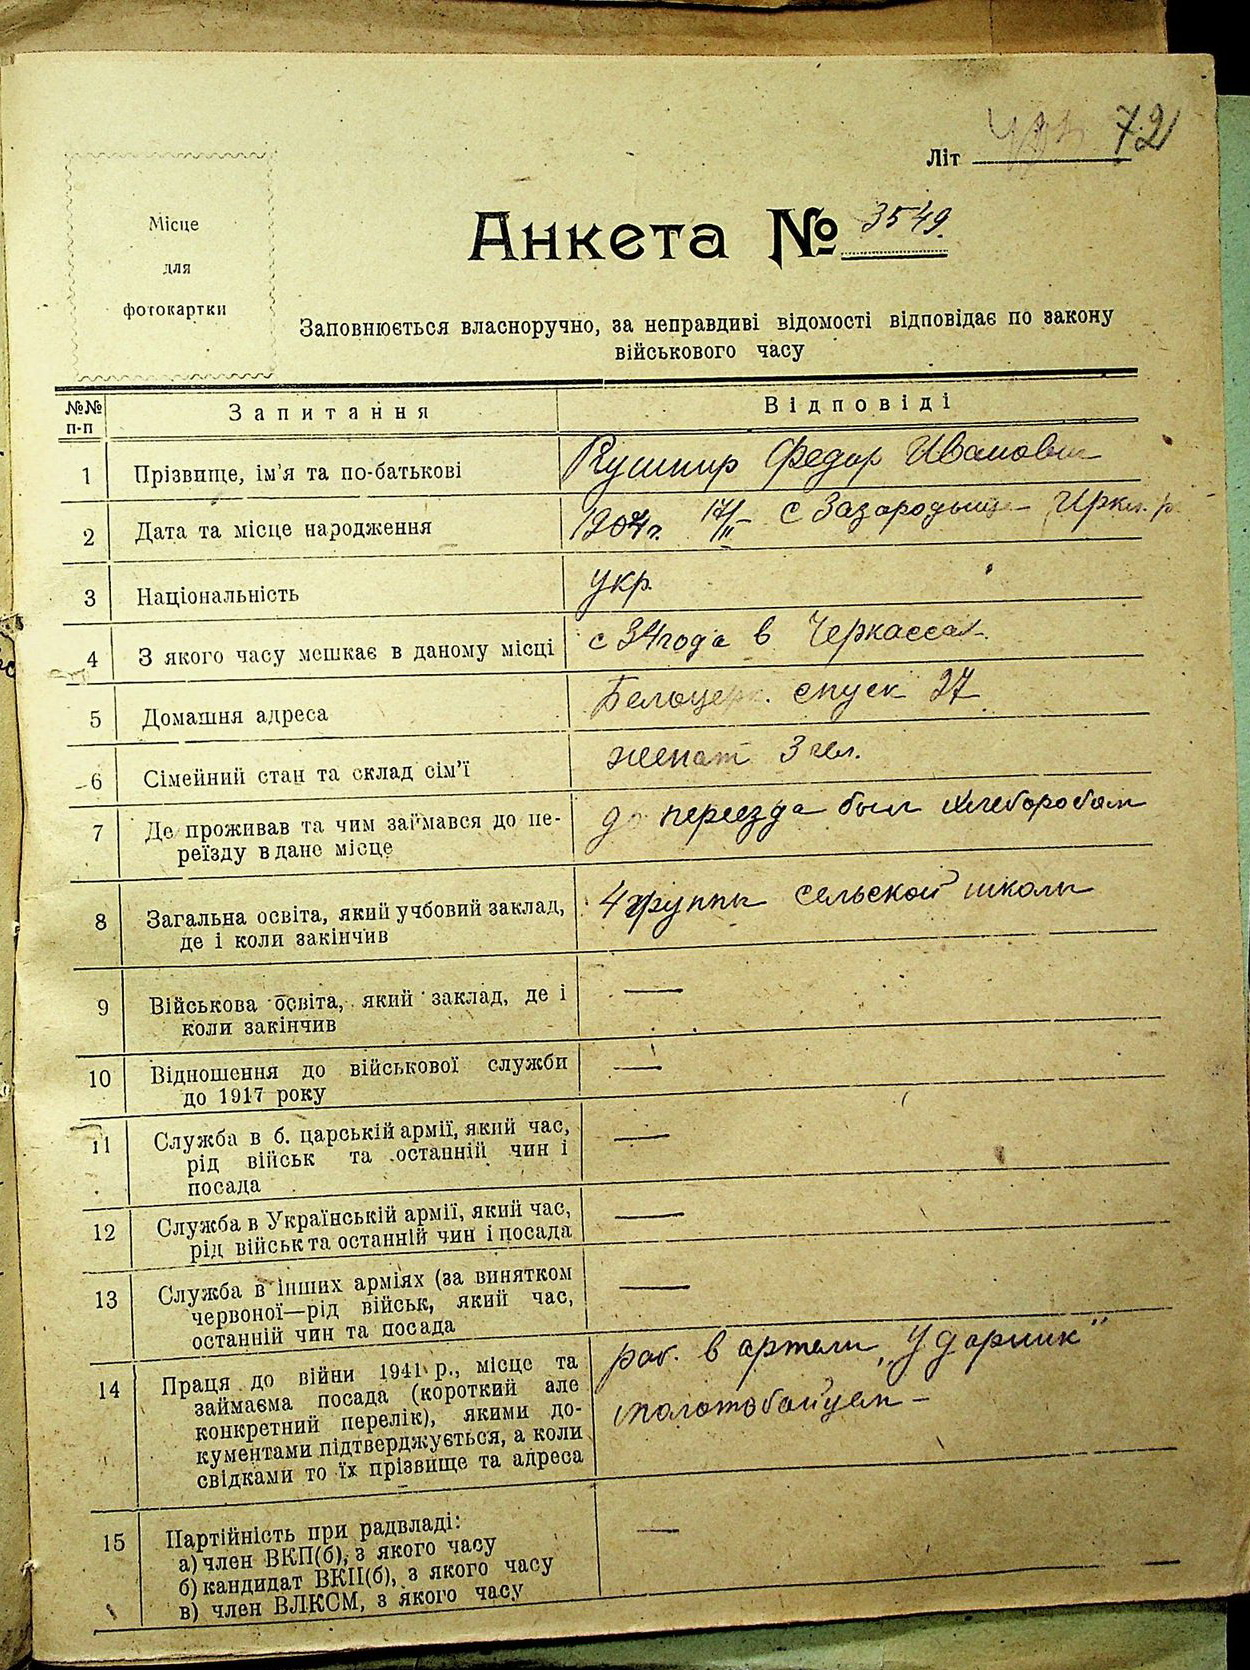 72
Літ
Місце
для
фотокартки
Анкета № 3549.
Заповнюється власноручно, за неправдиві відомості відповідає по закону
військового часу
№№ п-п
Запитання
Відповіді
1
Прізвище, ім'я та по-батькові
Кушнир Федор Иванович
2
Дата та місце народження
1907г. 17/II - с Загородыще Иркл. р.
3
Національність
укр.
4
З якого часу мешкає в даному місці
с 34 года в Черкассах
5
Домашня адреса
Белоцерк. спуск 27
6
Сімейний стан та склад сім'ї
женат 3 чел.
7
Де проживав та чим займався до пе-
реїзду в дане місце
до переезда был хлеборобом
8
Загальна освіта, який учбовий заклад,
де і коли закінчив
4 группы сельской школы
9
Військова освіта, який заклад, де і
коли закінчив
—
10
Відношення до військової служби
до 1917 року
—
11
Служба в б. царській армії, який час,
рід військ та останній чин і
посада
—
12
Служба в Українській армії, який час,
рід військ та останній чин і посада
—
13
Служба в інших арміях (за винятком
червоної—рід військ, який час,
останній чин та посада
—
14
Праця до війни 1941 р., місце та
займаєма посада (короткий але
конкретний перелік), якими до-
кументами підтверджується, а коли
свідками то їх прізвище та адреса
раб. в артели „Ударник"
молотобойцем –
15
Партійність при радвладі:
а) член ВКП(б), з якого часу
б) кандидат ВКП(б), з якого часу
в) член ВЛКСМ, з якого часу
—